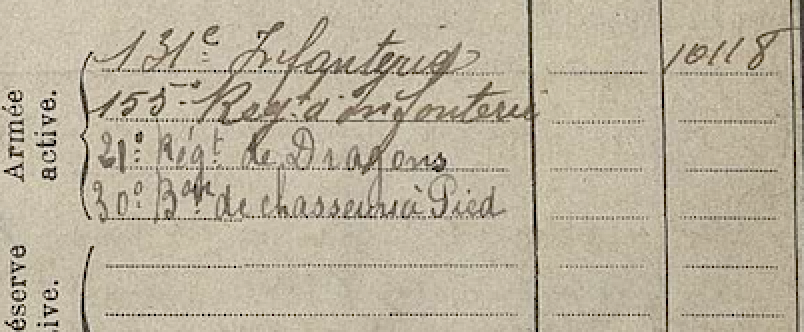 Armée active.
131e Infanterie 10118
155e Regt d'infanterie
21e Régt de Dragons
30e Bon de chasseurs à Pied
éserve
ive.